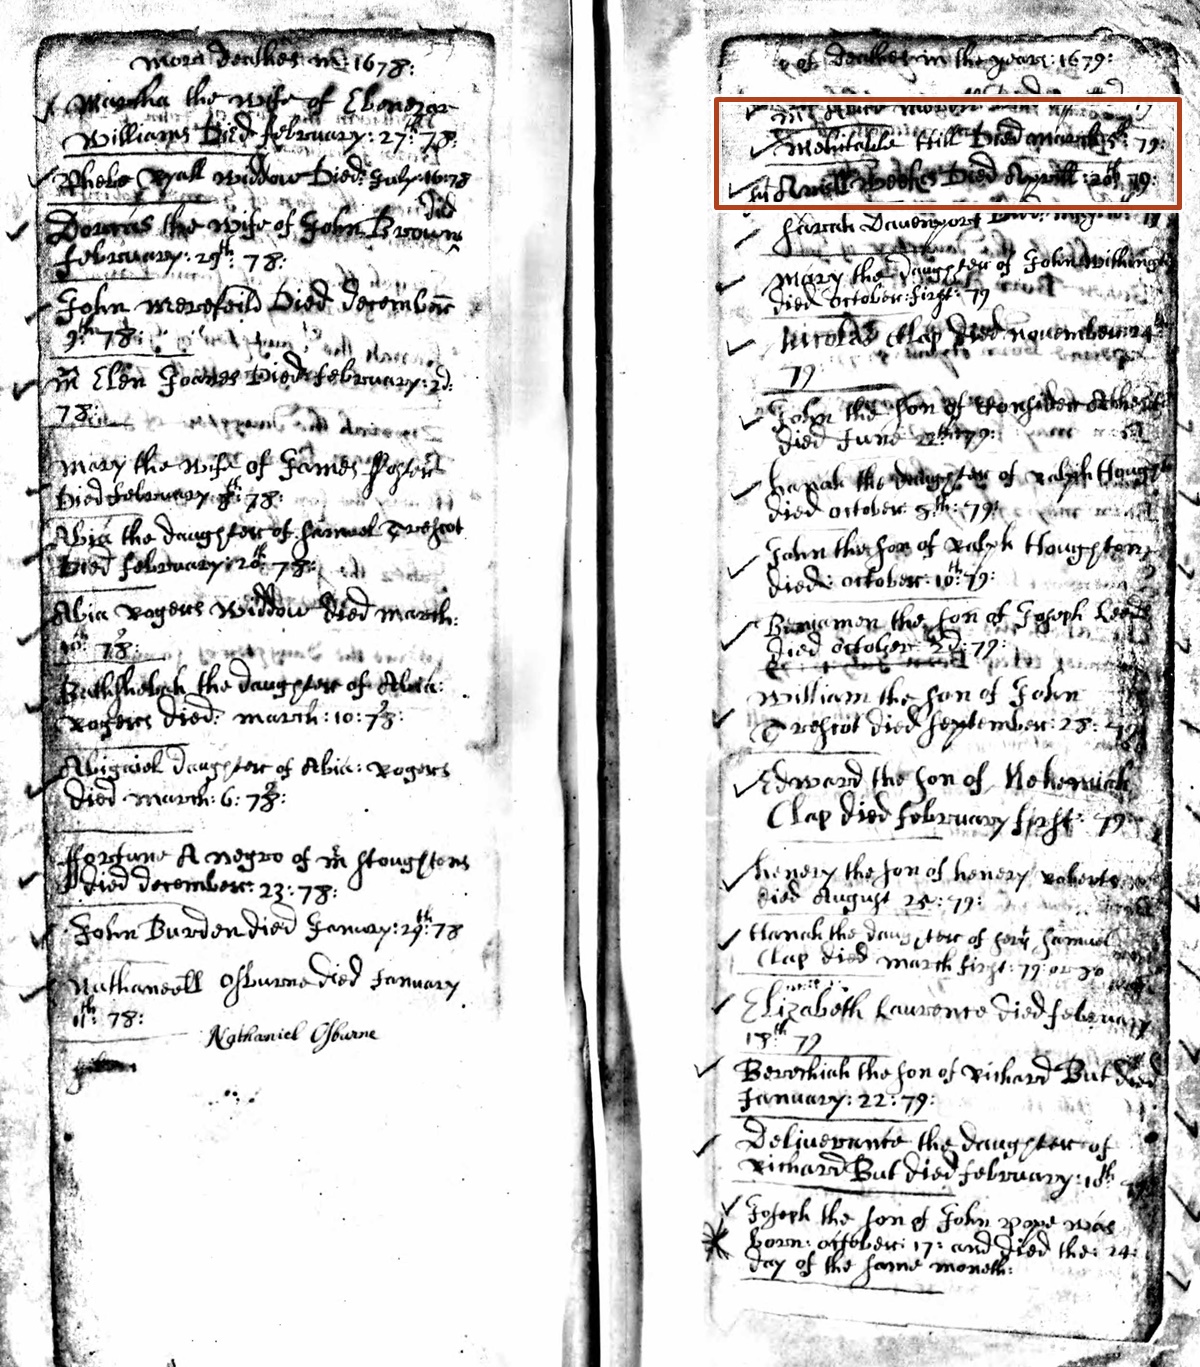 more deathes in: 1678:
Martha the wife of Ebenezar
Williams Died february: 27th: 78:
Widdow Died: July: 16: 78
Dorcas the wife of John Brown did
february: 29th: 78:
John Merefeild Died december
9th: 78:
mr Elen Joanes Died february: 2d:
78:
mary the wife of James Foster
Died february: 78:
Abia the daughter of Samuel Trescot
Died february: 20th: 78:
Abia Rogers Widdow died march:
78:
Bathshebah the daughter of Abia:
Rogers died: march: 10: 78:
Abigaiel daughter of Abia: Rogers
died march: 6: 78:
ffortune A negro of mr Stoughtons
died december: 23: 78:
John Burden died January: 29th: 78
Nathaneell Osburne died January
11th: 78:
Nathaniel Osburne
of deathes in the yeare: 1679:
Mehitable Hill Died march: 79:
Died Aprill: 20th 79:
Sarah Davenport
mary the daughter of John Withington
died october: first: 79
Nicolas Clap died november: 24th
79
John the son of Consider Atherton
died June 79:
hanah the daughter of Ralph Hought
died october: 5th: 79:
John the son of Ralph Houghton
died: october: 10th: 79:
Benjamen the son of Joseph Leeds
died october 2d: 79:
William the son of John
Trescot died september: 28: 79
Edward the son of Nehemiah
Clap died february first: 79:
henery the son of henery Roberts
died August 25: 79:
Hanah the daughter of Samuel
Clap died march first: 79: or 80
Elizabeth Laurence died february
18th 79
Berechiah the son of Richard But died
January: 22: 79:
Deliverance the daughter of
Richard But died february: 10th
Joseph the son of John Pope was
born: october: 17: and died the: 24:
day of the same moneth: